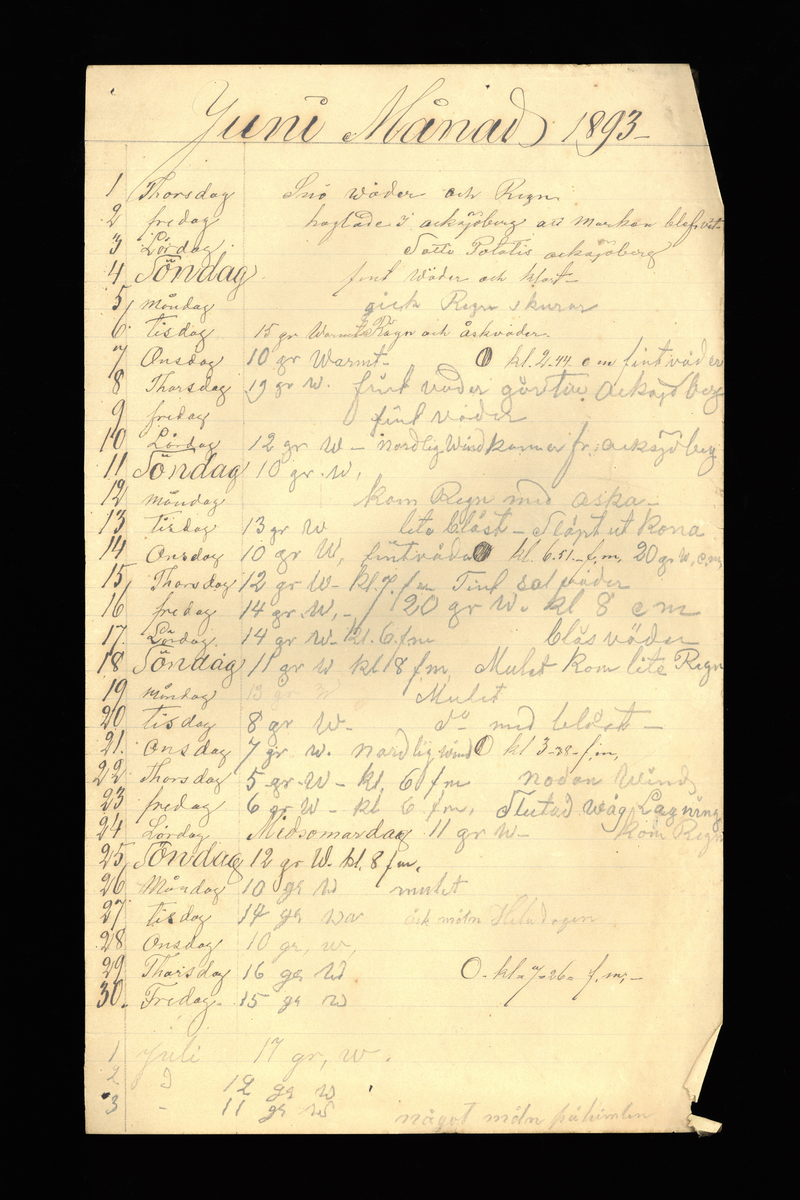 Juni Månad 1893-
1 Thorsdag Snö wäder och Regn
2 fredag haglade i acksjöberg att marken blef vit
3 Lördag Satte Potatis acksjöberg
4 Söndag fint wäder och klart-
5 måndag gick Regn skurar
6 tisdag 15 gr Warmt Rägn och åskväder.
7 Onsdag 10 gr Warmt- kl. 2.44 e m fint väder
8 Thorsdag 19 gr W. fint väder acksjöberg
9 fredag fint väder
10 Lördag 12 gr W - nordlig Wind kommer fr. acksjöberg
11 Söndag 10 gr. W,
12 måndag kom Regn med aska-
13 tisdag 13 gr W lite blåst - Släpt ut kona
14 Onsdag 10 gr W, fint väder kl. 6.51. f,m, 20 gr W, e,m,
15 Thorsdag 12 gr W- kl. 7. f m väder
16 fredag 14 gr. W,- 20 gr W. kl 8 e m
17. Lördag. 14 gr W- 6. f m blås väder
18 Söndag 11 gr W kl 8 f m, Mulet kom lite Regn
19 måndag 13 gr W Mulet
20 tisdag 8 gr W. do med blåst -
21. Onsdag 7 gr w. nordlig wind kl 3-38- f,m,
22 Thorsdag 5 gr W - kl, 6 f m nodan Wind
23 fredag 6 gr W - kl 6 f m, Slutad wäg Lagning
24 Lördag Midsomardag 11 gr W- kom Regn
25 Söndag 12 gr W. kl. 8 f m,
26 Måndag 10 gr W mulet
27 tisdag 14 gr war moln Heladagen
28 Onsdag 10 gr, w,
29 Thorsdag 16 gr W kl- 7-26- f, m,-
30. Fredag- 15 gr W
1 Juli 17 gr, w.
2 12 gr W
3 - 11 gr W något moln på himlen